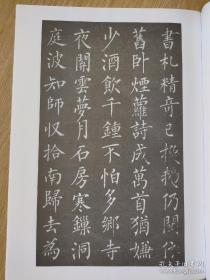 書札精奇已換鵝仍閑依
舊卧煙蘿詩成萬首猶嫌
少酒飲千鍾不怕多鄉寺
夜開雲夢月石房寒鏁洞
庭波知師収拾南歸去為